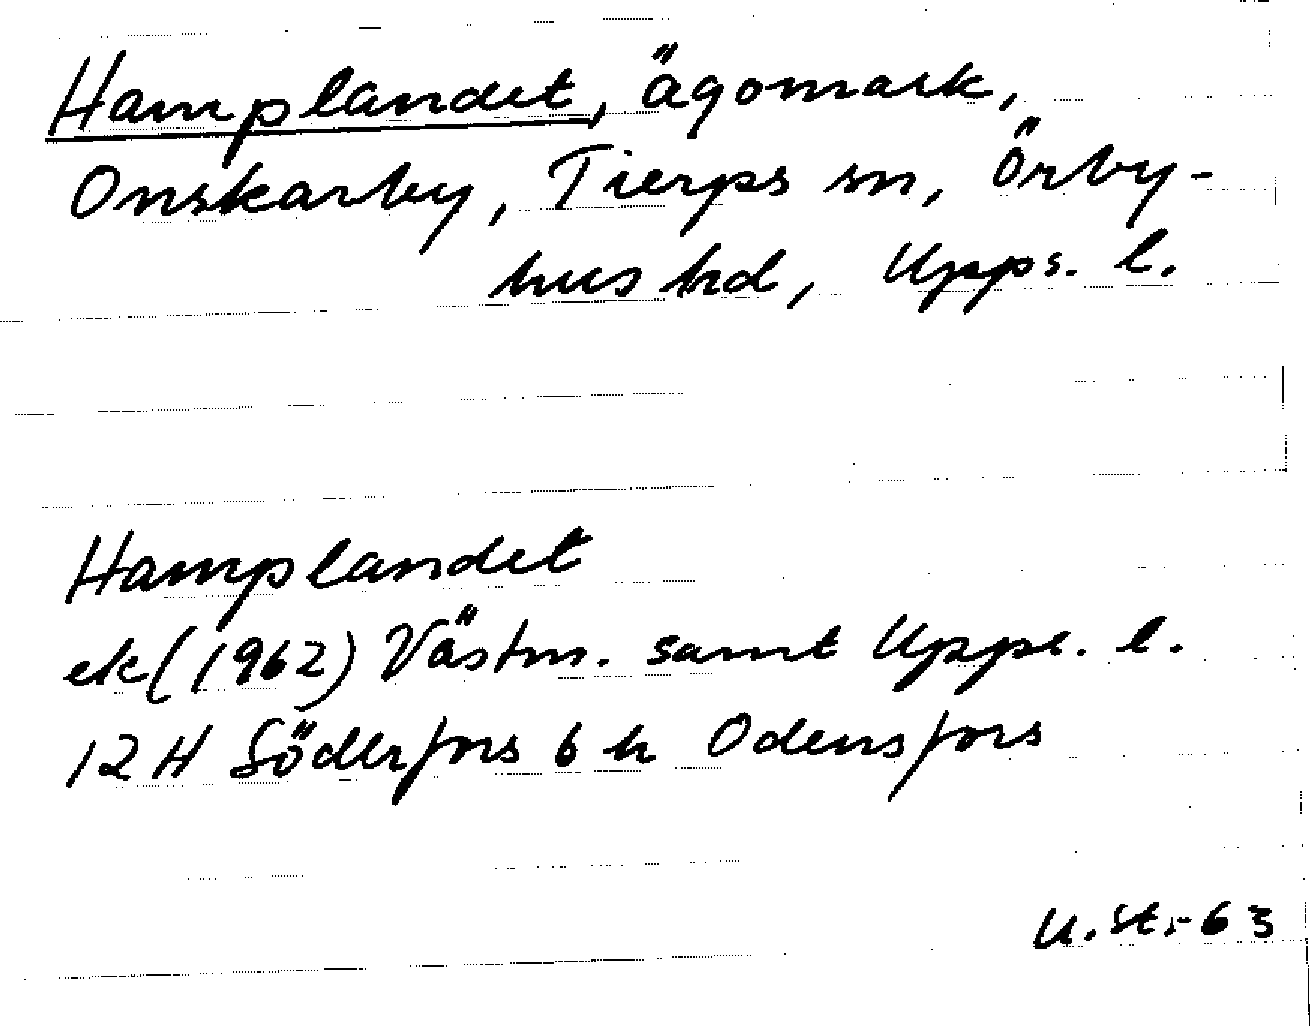 Hamplandet, ägomark,
Onskarby, Tierps sn, Örby-
hus hd, Upps. l.
Hamplandet
ek (1962) Västm. samt Upps. l.
12 H Söderfors 6 h Odensfors
U.St.-63